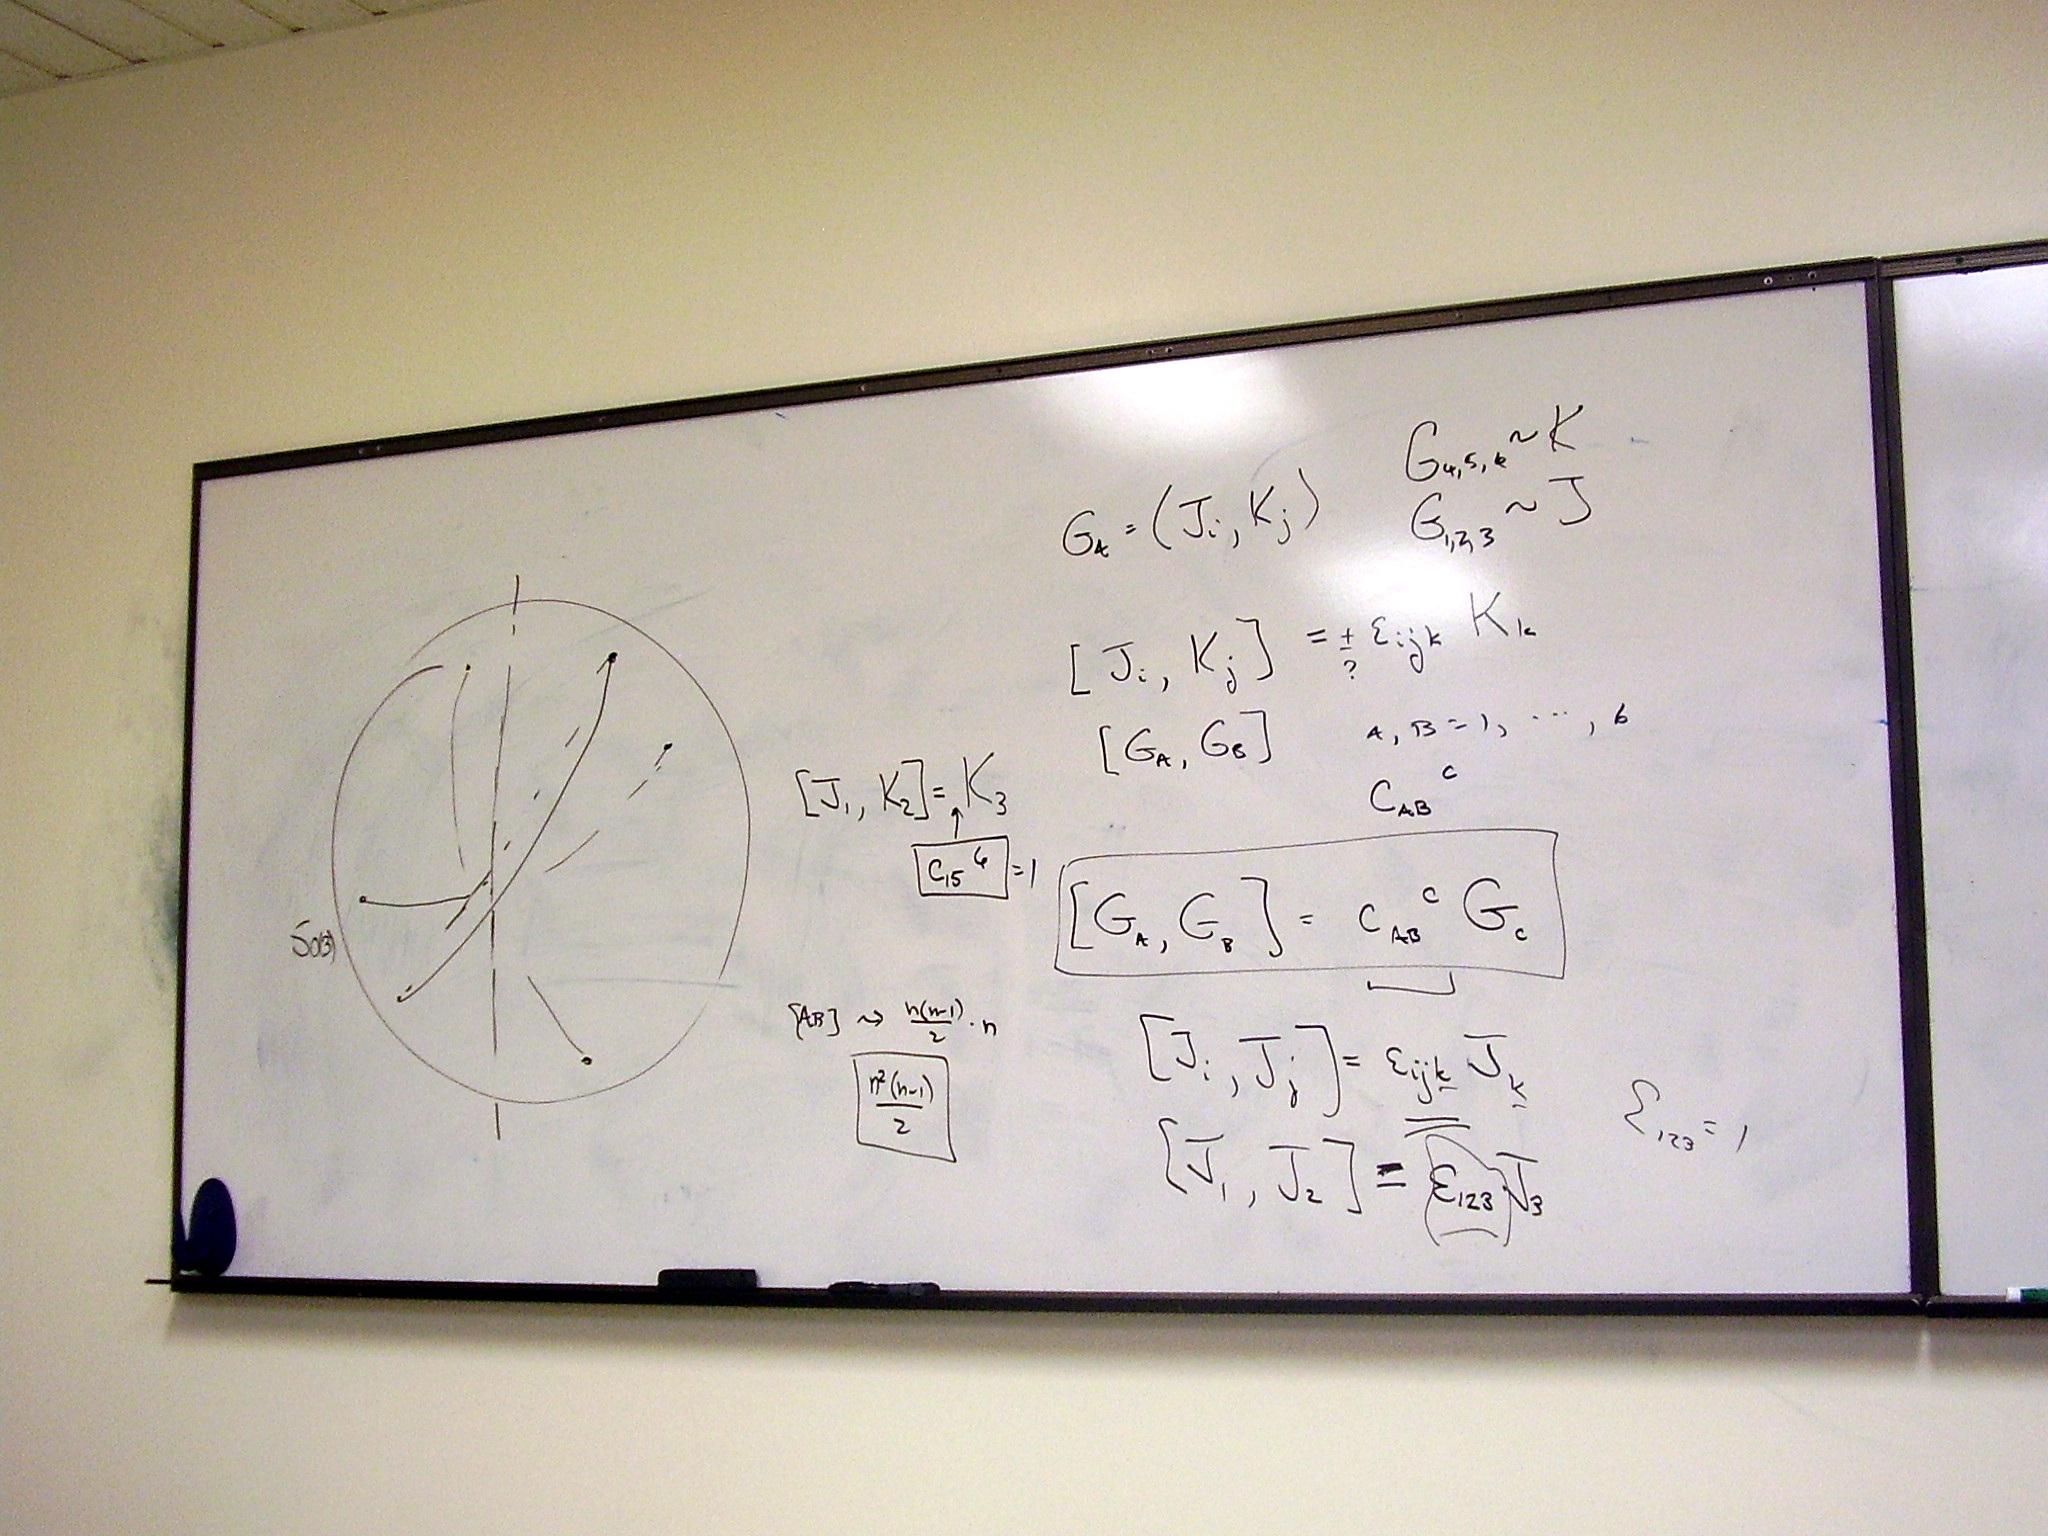 G_A = (J_i, K_j)
G_{4,5,6} ~ K
G_{1,2,3} ~ J
[J_i, K_j] = ± ε_{ijk} K_k
?
[G_A, G_B] A, B = 1, ..., 6
C_{AB}^C
[J_1, K_2] = K_3
C_{15}^6 = 1
[G_A, G_B] = C_{AB}^C G_C
SO(3)
[AB] ⇝ n(n-1)/2 · n
n²(n-1)/2
[J_i, J_j] = ε_{ijk} J_k
ε_{123} = 1
[J_1, J_2] = ε_{123} J_3